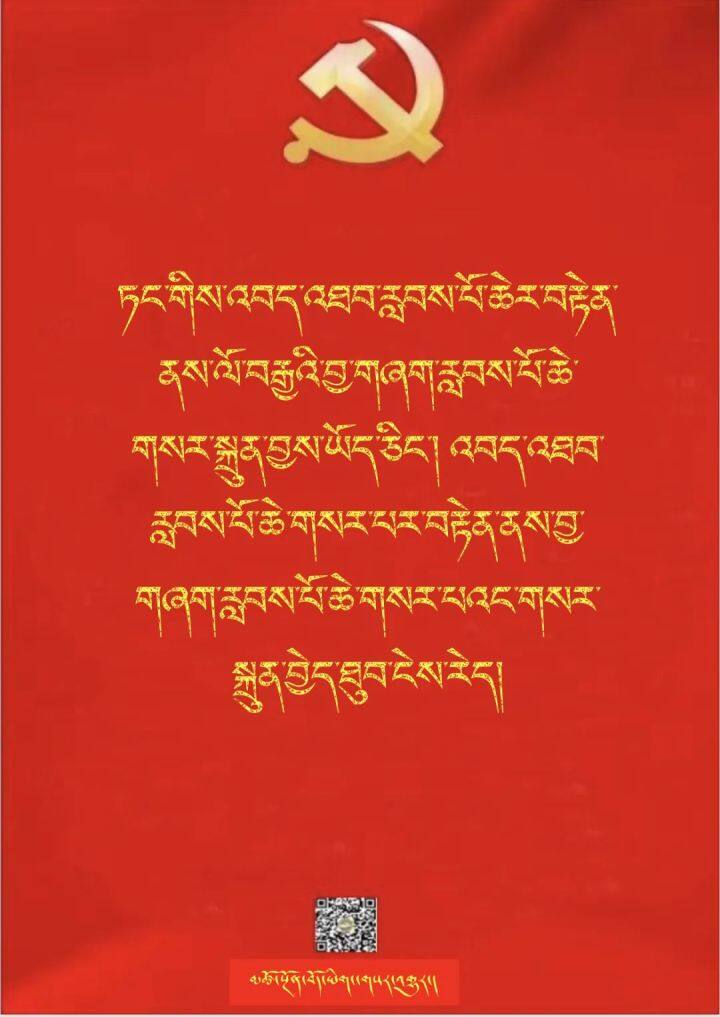 ཏང་གིས་འབད་འཐབ་རླབས་པོ་ཆེར་བརྟེན་
ནས་ལོ་བརྒྱའི་བྱ་གཞག་རླབས་པོ་ཆེ་
གསར་སྐྲུན་བྱས་ཡོད་ཅིང་། འབད་འཐབ་
རླབས་པོ་ཆེ་གསར་པར་བརྟེན་ནས་བྱ་
གཞག་རླབས་པོ་ཆེ་གསར་པའང་གསར་
སྐྲུན་བྱེད་ཐུབ་ངེས་རེད།